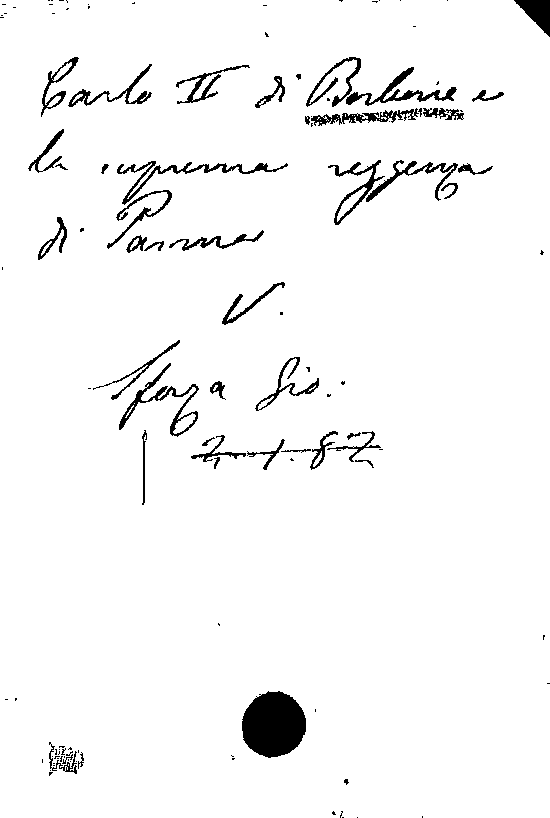 Carlo II di Borbone e
la suprema reggenza
di Parma
V.
Sforza Gio.:
2.1.82